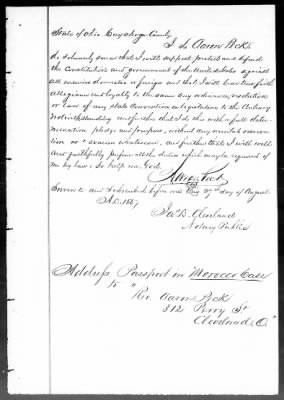 State of Ohio Cuyahoga County
I do Aaron Peck
do solemnly swear that I will support, protect and defend
the Constitution and government of the United States against
all enemies domestic or foreign and that I will bear true faith
allegiance and loyalty to the same any ordinance, resolution
or law of any state Convention or legislature to the Contrary
notwithstanding and further that I do this with a full deter-
mination pledge and purpose, without any mental reserva
tion or evasion whatsoever, and further that I will well
and faithfully perform all the duties which may be required of
me by law: So help me God.
Aaron Peck
Sworn to and subscribed before me this 27th day of August
A.D. 1867
Jas D. Cleveland
Notary Public
Address Passport in Morocco Case
to "
"Rev. Aaron Peck
312 Perry St
Cleveland, O."